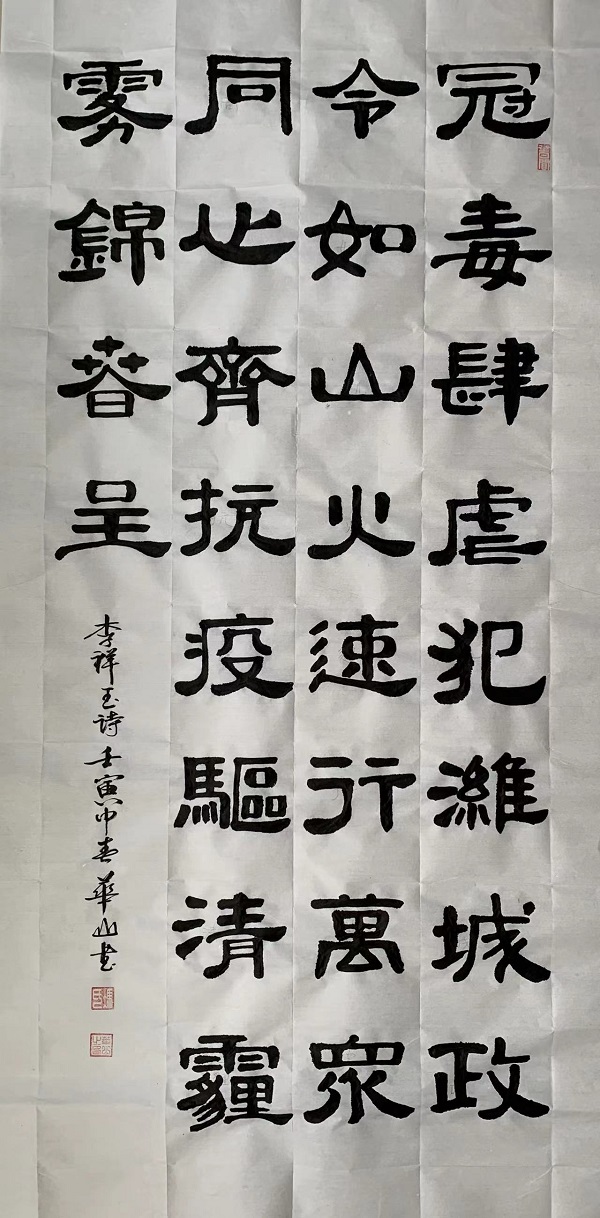 冠毒肆虐犯濰城政
令如山火速行萬眾
同心齊抗疫驅清霾
雾錦春呈
李祥玉詩壬寅中春華山書